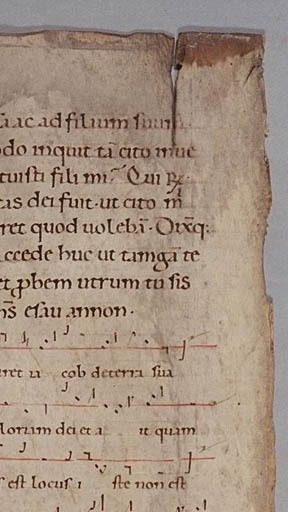 saac ad filium suum
odo inquit tā cito inue
tuisti fili mi? Qui
tas dei fuit· ut cito m̄
ret quod volebā· Dixq;
ccede huc ut tangā te
et ꝓbem utrum tu sis
m̄s esau annon·
ret ia cob de terra sua
loriam dei et a it quam
s est locus i ste non est